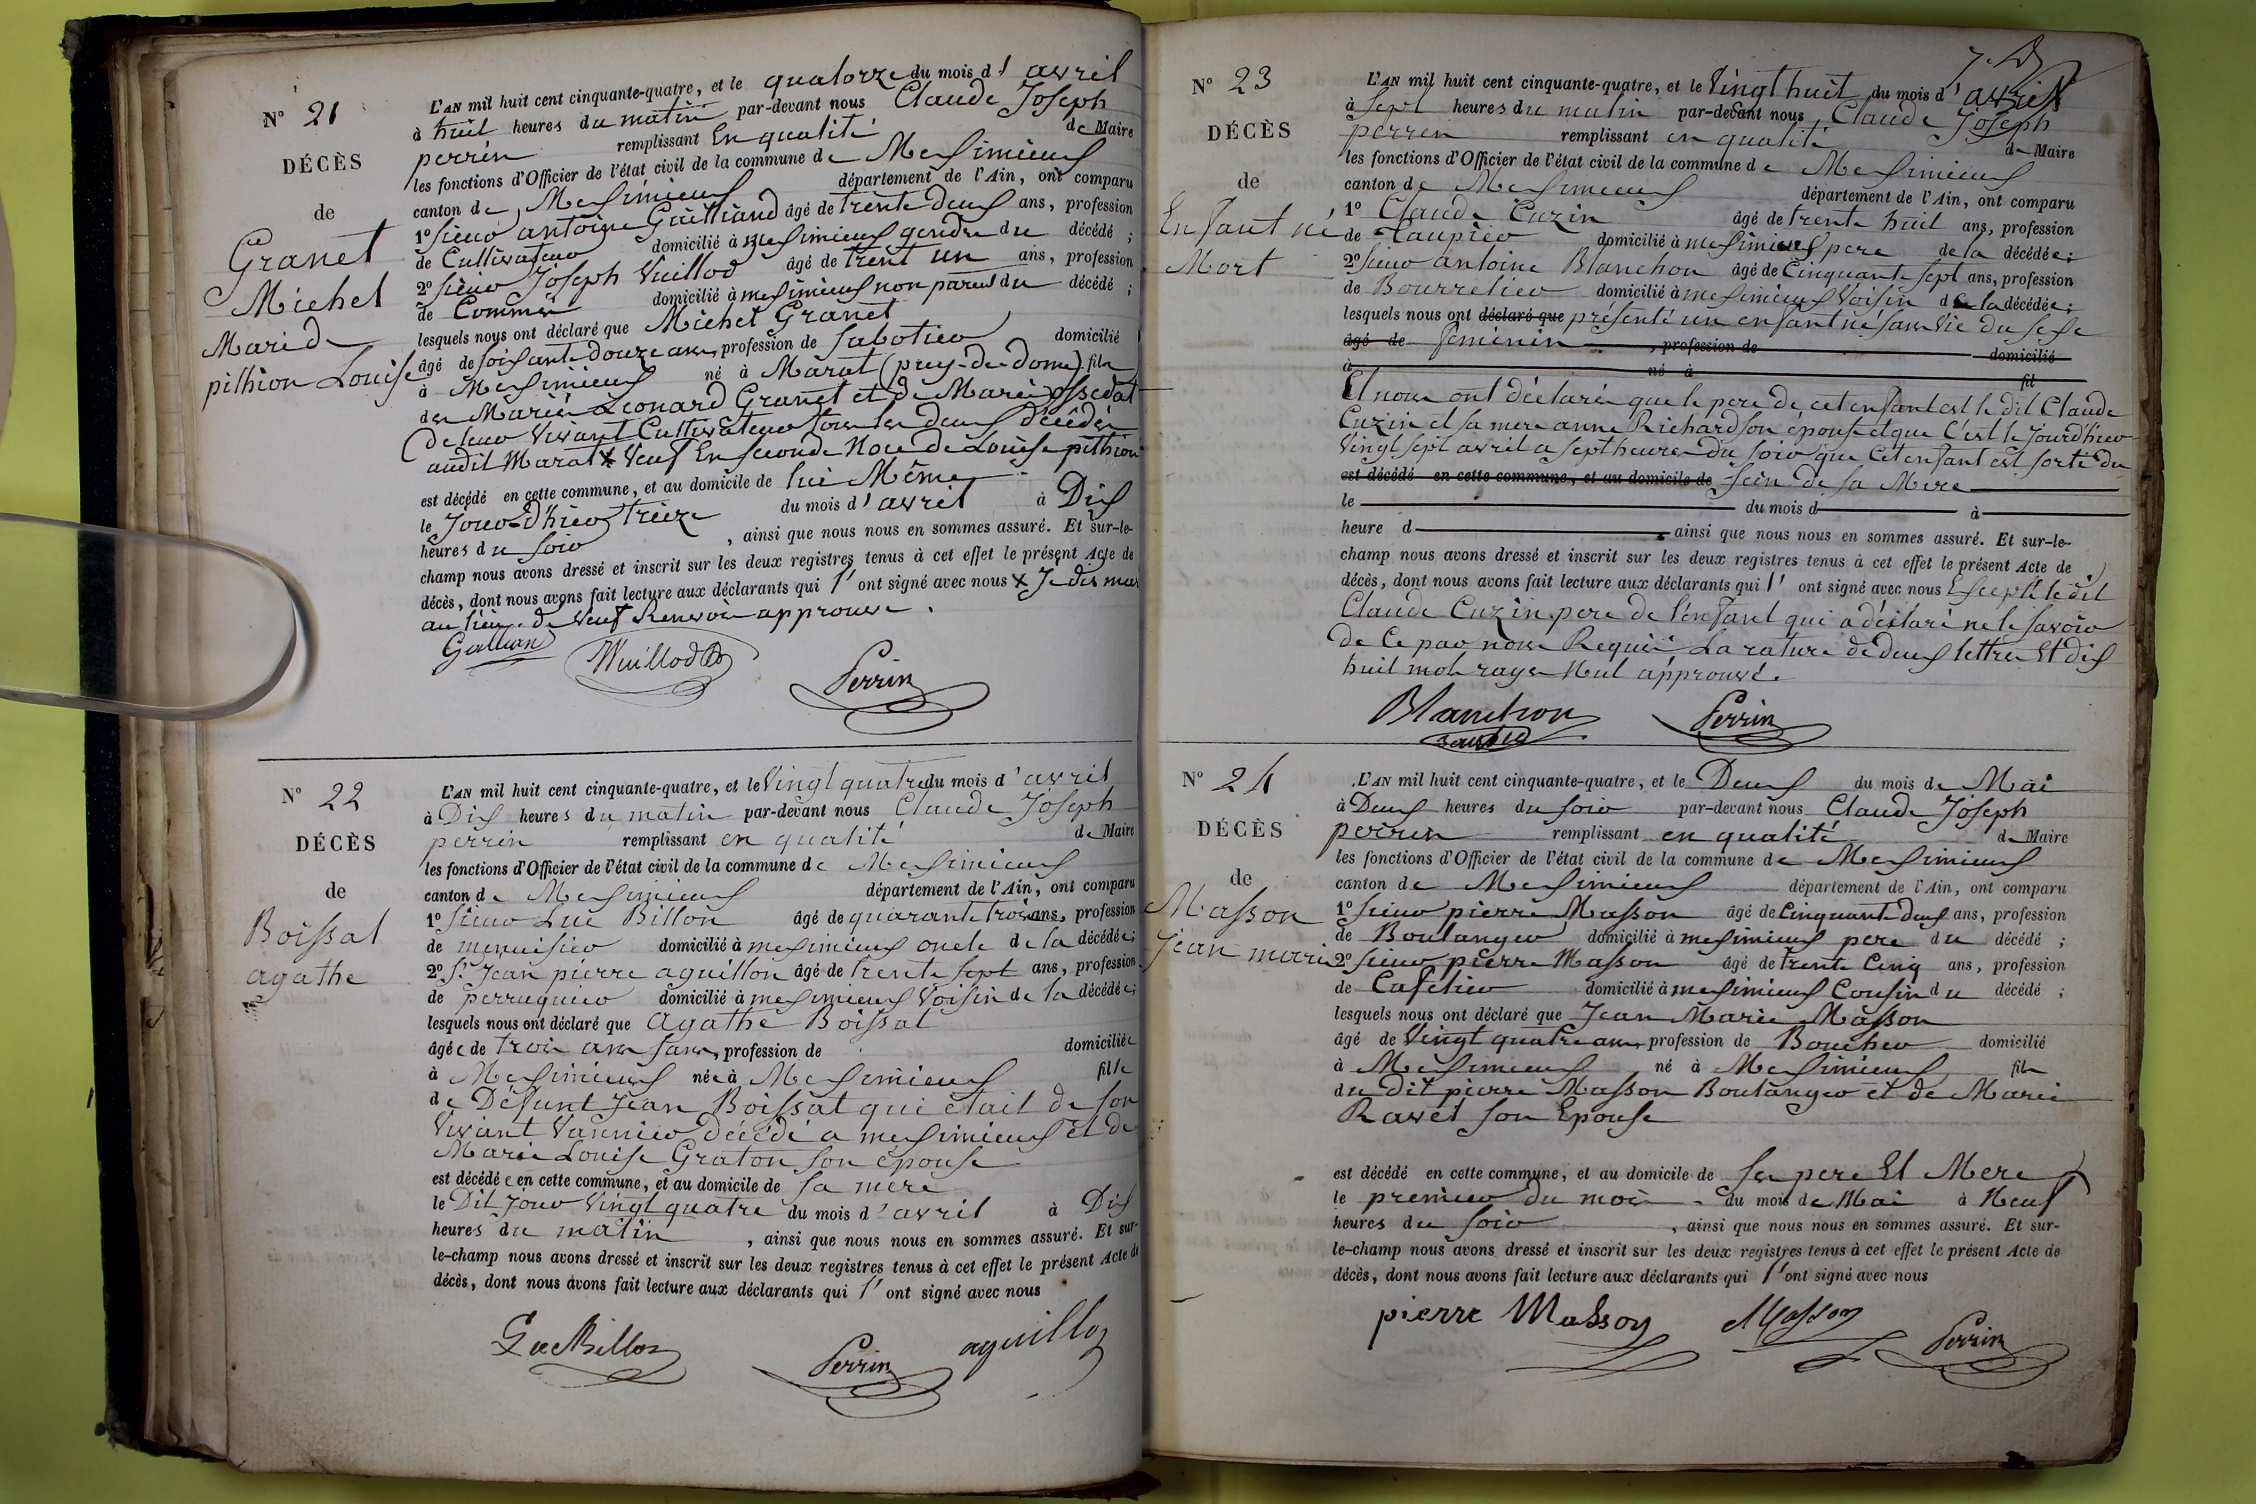 N° 21
DÉCÈS
de
Granet
Michel
Mari de
pithion Louise
L'AN mil huit cent cinquante-quatre, et le quatorze du mois d'avril
à huit heures du matin par-devant nous Claude Joseph
perrin remplissant En qualité de Maire
les fonctions d'Officier de l'état civil de la commune de Meximieux
canton de Meximieux département de l'Ain, ont comparu
1° sieur antoine Galliand âgé de trente deux ans, profession
de Cultivateur domicilié à meximieux gendre du décédé ;
2° sieur Joseph Vuillod âgé de trent un ans, profession
de Commis domicilié à meximieux non parent du décédé ;
lesquels nous ont déclaré que Michel Granet
âgé de soixante douze ans, profession de Sabotier domicilié
à Meximieux né à Marat (puy-de-dome) fils
des Mariés Léonard Granet et de Marie ossedat
De leur Vivant Cultivateur tous les deux décédés
audit Marat x Veuf En seconde Noce de Louise pithion
est décédé en cette commune, et au domicile de lui Même
le Jour-d'hier treize du mois d'avril à Dix
heures du soir , ainsi que nous nous en sommes assuré. Et sur-le-
champ nous avons dressé et inscrit sur les deux registres tenus à cet effet le présent Acte de
décès, dont nous avons fait lecture aux déclarants qui l'ont signé avec nous x Je dis mari
au lieu de Veuf Renvoi approuvé.
Gallian Vuillod Perrin
N° 22
DÉCÈS
de
Boissat
agathe
L'AN mil huit cent cinquante-quatre, et le Vingt quatre du mois d'avril
à Dix heures du matin par-devant nous Claude Joseph
perrin remplissant en qualité de Maire
les fonctions d'Officier de l'état civil de la commune de Meximieux
canton de Meximieux département de l'Ain, ont comparu
1° sieur Luc Billon âgé de quarante trois ans, profession
de menuisier domicilié à meximieux oncle de la décédée ;
2° Sr Jean pierre aguillon âgé de trente sept ans, profession
de perruquier domicilié à meximieux Voisin de la décédée ;
lesquels nous ont déclaré que Agathe Boissat
âgée de trois ans sans, profession de domiciliée
à Meximieux née à Meximieux fille
de Défunt Jean Boissat qui était de son
Vivant Vannier décédé a meximieux et de
Marie Louise Graton son épouse
est décédée en cette commune, et au domicile de sa mère
le Dit jour Vingt quatre du mois d'avril à Dix
heures du matin , ainsi que nous nous en sommes assuré. Et sur-
le-champ nous avons dressé et inscrit sur les deux registres tenus à cet effet le présent Acte de
décès, dont nous avons fait lecture aux déclarants qui l'ont signé avec nous
Luc Billon Perrin aguillon
N° 23
DÉCÈS
de
Enfant né
Mort
L'AN mil huit cent cinquante-quatre, et le Vingt huit du mois d'avril
à Sept heures du matin par-devant nous Claude Joseph
perrin remplissant en qualité de Maire
les fonctions d'Officier de l'état civil de la commune de Meximieux
canton de Meximieux département de l'Ain, ont comparu
1° Claude Cuzin âgé de trente huit ans, profession
de Taupier domicilié à meximieux pere de la décédée ;
2° sieur antoine Blanchon âgé de Cinquante sept ans, profession
de Bourrelier domicilié à meximieux Voisin de la décédée ;
lesquels nous ont déclaré que présenté un enfant né sans Vie du sexe
âgé de feminin , profession de domicilié
à né à fil
Et nous ont déclaré que le pere de cet enfant est le dit Claude
Cuzin et sa mere anne Richard son épouse et que C'est le Jourd'hier
Vingt sept avril a sept heures du soir que Cet enfant est sorti du
est décédé en cette commune, et au domicile de sein de sa Mere
le du mois d à
heure d ainsi que nous nous en sommes assuré. Et sur-le-
champ nous avons dressé et inscrit sur les deux registres tenus à cet effet le présent Acte de
décès, dont nous avons fait lecture aux déclarants qui l'ont signé avec nous Excepté le dit
Claude Cuzin pere de l'enfant qui a déclaré ne le savoir
de Ce par nous Requis La rature de deux lettres Et dix
huit mots rayés Nul approuvé.
Blanchon Perrin
N° 24
DÉCÈS
de
Masson
Jean marie
L'AN mil huit cent cinquante-quatre, et le Deux du mois de Mai
à Deux heures du soir par-devant nous Claude Joseph
perrin remplissant en qualité de Maire
les fonctions d'Officier de l'état civil de la commune de Meximieux
canton de Meximieux département de l'Ain, ont comparu
1° sieur pierre Masson âgé de Cinquante deux ans, profession
de Boulanger domicilié à meximieux pere du décédé ;
2° sieur pierre Masson âgé de trente Cinq ans, profession
de Cafetier domicilié à meximieux Cousin du décédé ;
lesquels nous ont déclaré que Jean Marie Masson
âgé de Vingt quatre ans, profession de Boucher domicilié
à Meximieux né à Meximieux fils
du Dit pierre Masson Boulanger et de Marie
Ravet son Epouse
est décédé en cette commune, et au domicile de ses pere Et Mere
le premier du mois du mois de Mai à Neuf
heures du soir , ainsi que nous nous en sommes assuré. Et sur-
le-champ nous avons dressé et inscrit sur les deux registres tenus à cet effet le présent Acte de
décès, dont nous avons fait lecture aux déclarants qui l'ont signé avec nous
pierre Masson Masson Perrin